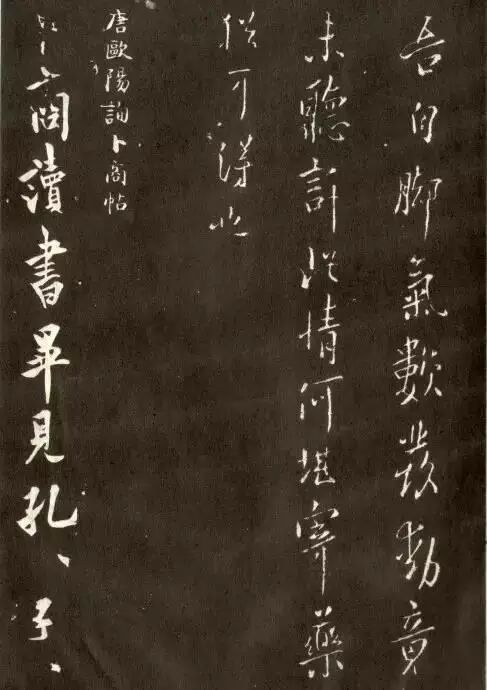 吾自脚氣數發動竟
未聽許此情何堪寄藥
猶可得也
唐歐陽詢卜商帖
卜商讀書畢見孔、子、